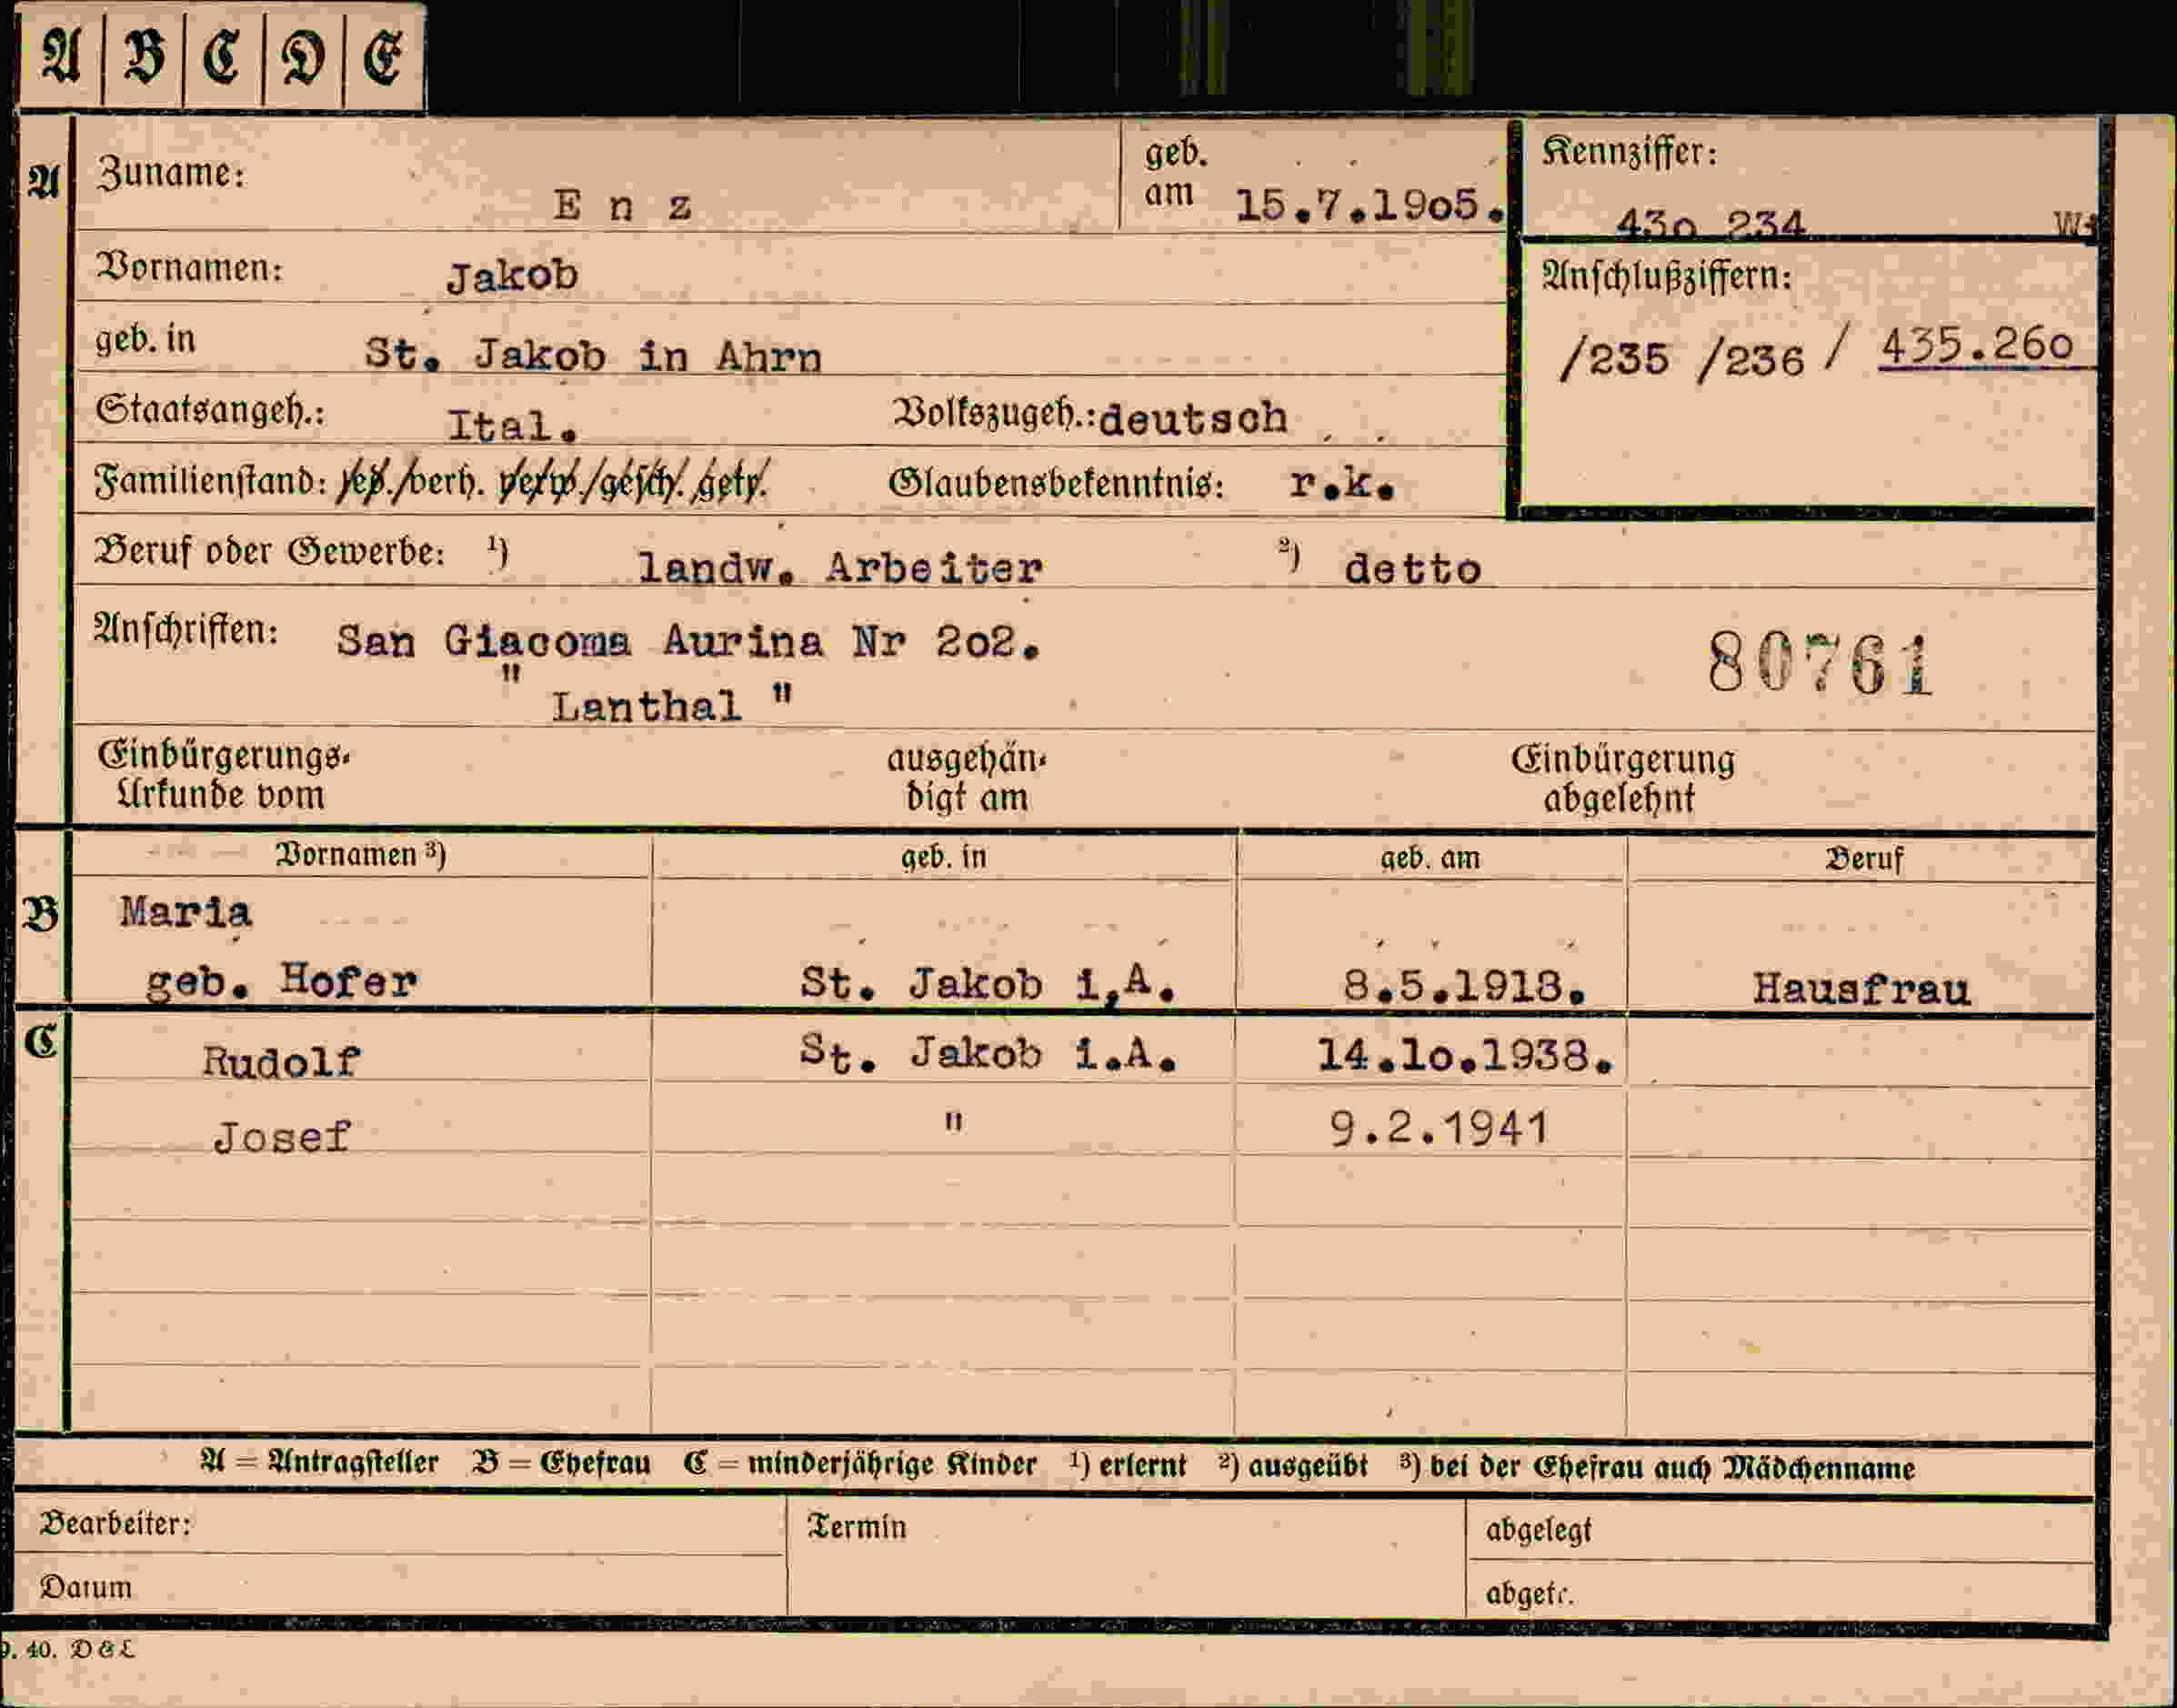 A B C D E
A Zuname: Enz geb. am 15.7.19o5. Kennziffer: 43o 234
Vornamen: Jakob Anschlußziffern:
geb. in St. Jakob in Ahrn /235 /236 / 435.26o
Staatsangeh.: Ital. Volkszugeh.: deutsch
Familienstand: led./verh. verw./gesch. getr. Glaubensbekenntnis: r.k.
Beruf oder Gewerbe: 1) landw. Arbeiter 2) detto
Anschriften: San Giacoma Aurina Nr 2o2. 80761
" Lanthal "
Einbürgerungs- ausgehän- Einbürgerung
Urkunde vom digt am abgelehnt
Vornamen 3) geb. in geb. am Beruf
B Maria
geb. Hofer St. Jakob i.A. 8.5.1918. Hausfrau
C Rudolf St. Jakob i.A. 14.1o.1938.
Josef " 9.2.1941
A = Antragsteller B = Ehefrau C = minderjährige Kinder 1) erlernt 2) ausgeübt 3) bei der Ehefrau auch Mädchenname
Bearbeiter: Termin abgelegt
Datum abgetr.
9. 40. D & L